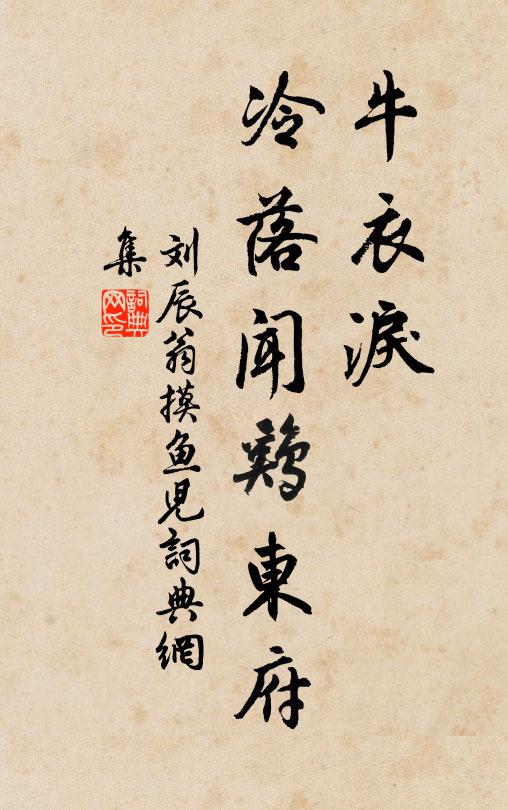 牛衣淚
冷落聞鷄東府
刘辰翁摸鱼児詞典網
集
詞典网印